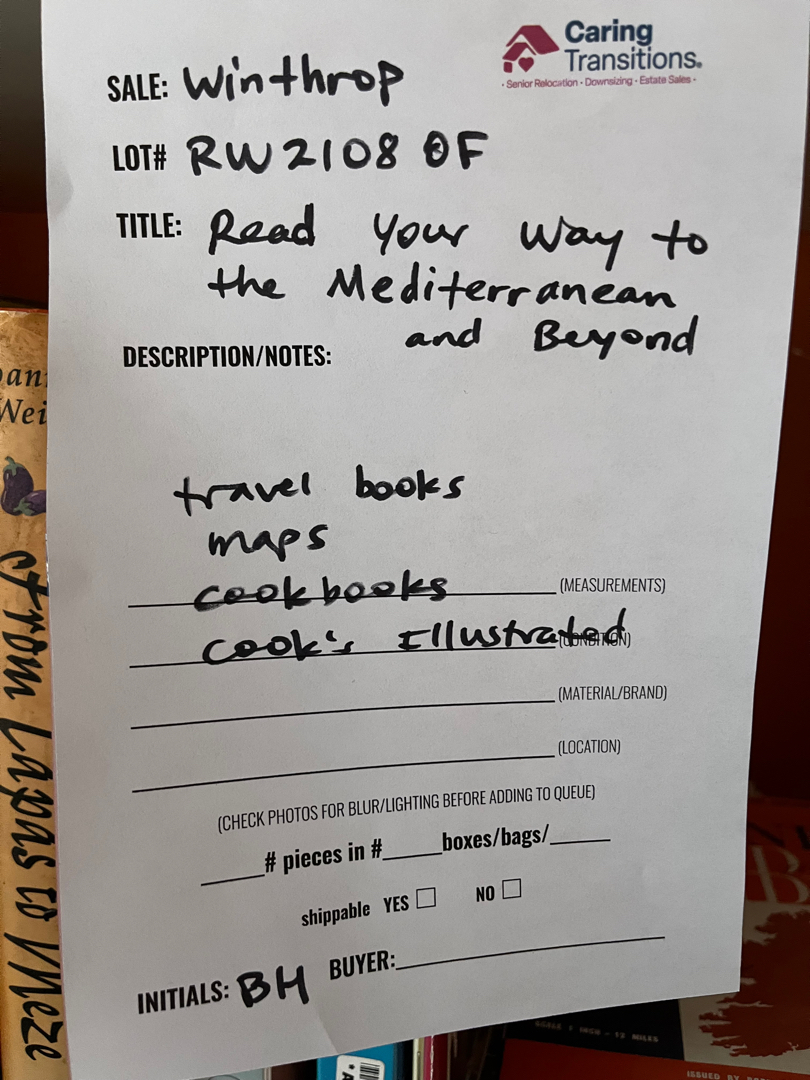 Caring
Transitions®
• Senior Relocation • Downsizing • Estate Sales •
SALE: Winthrop
LOT# RW2108 OF
TITLE: Read Your Way to
the Mediterranean
and Beyond
DESCRIPTION/NOTES:
travel books
maps
cookbooks (MEASUREMENTS)
Cook's Illustrated (CONDITION)
(MATERIAL/BRAND)
(LOCATION)
(CHECK PHOTOS FOR BLUR/LIGHTING BEFORE ADDING TO QUEUE)
# pieces in # boxes/bags/
shippable YES NO
INITIALS: BH BUYER:
from Tapas to Meze
SCALE 1 INCH - 12 MILES
ISSUED BY